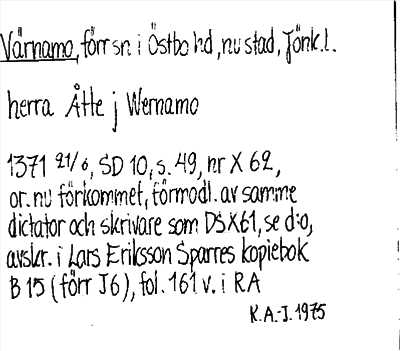 Värnamo, förr sn i Östbo hd, nu stad, Jönk.l.
herra Åtte j Wernamo
1371 21/6, SD 10, s. 49, nr X 62,
or. nu förkommet, förmodl. av samme
dictator och skrivare som DSX61, se d:o,
avskr. i Lars Eriksson Sparres kopiebok
B 15 (förr J6), fol. 161 v. i RA
K.A.-J. 1975